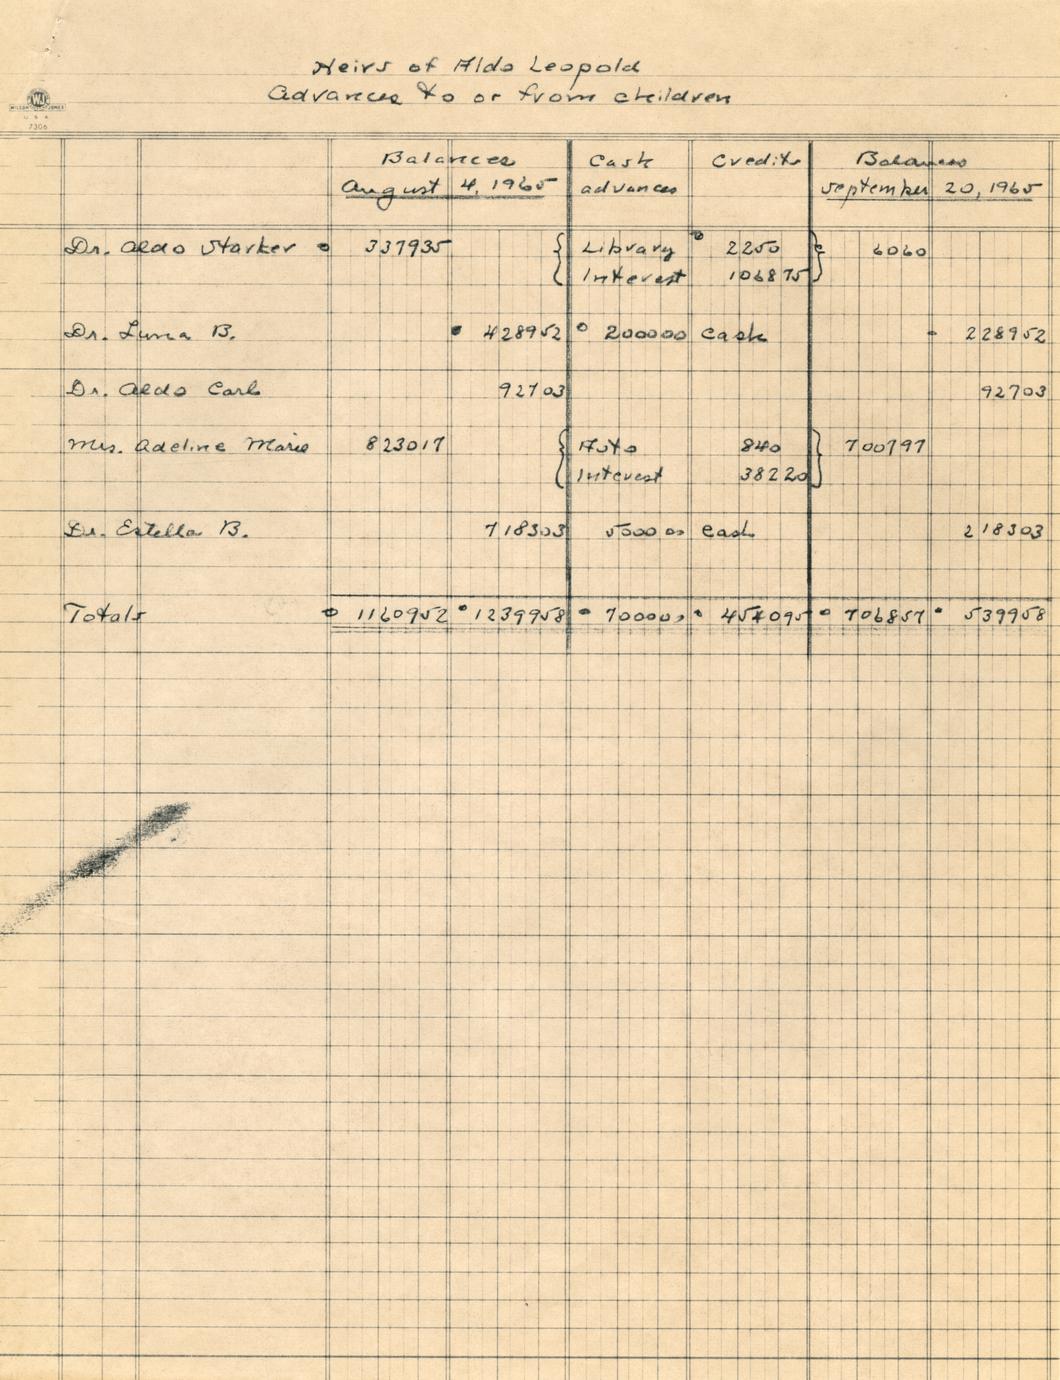 Heirs of Aldo Leopold
Advances to or from children
WJ
WILSON JONES
U S A
7306
Balances Cash Credits Balances
August 4, 1965 advances September 20, 1965
Dr. Aldo Starker 337935 { Library 2250 } 6060
Interest 106875
Dr. Luna B. 428952 200000 cash 228952
Dr. Aldo Carl 92703 92703
Mrs. Adeline Marie 823017 { Auto 840 } 700797
Interest 38220
Dr. Estella B. 718303 500000 cash 218303
Totals 1160952 1239958 700000 454095 706857 539958